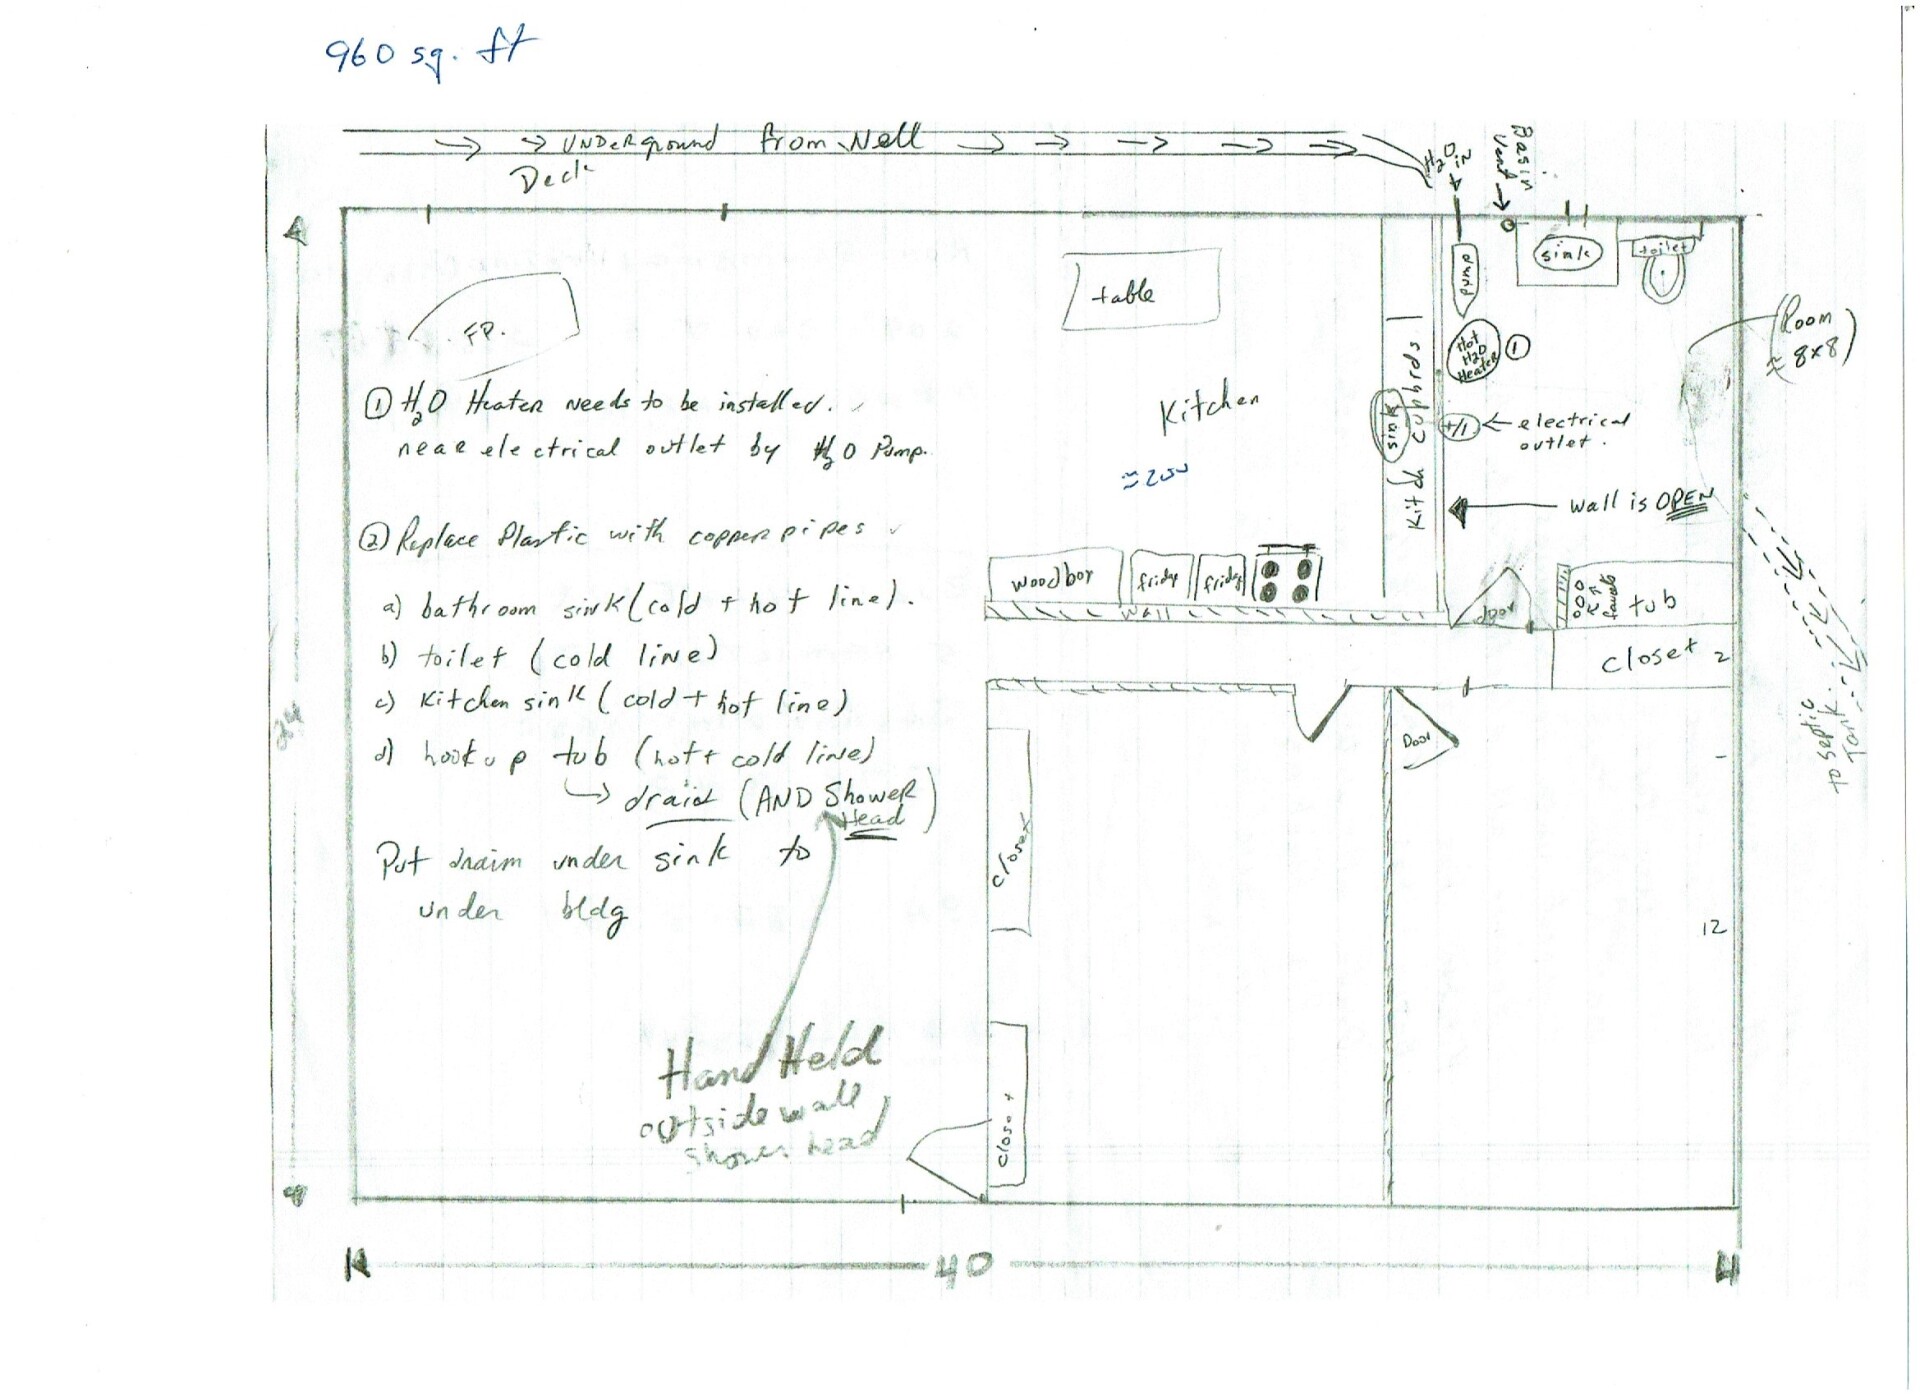 960 sq. ft
UNDERground from Well
Deck
H2O in
Basin
Vent
FP.
table
Pump
sink
toilet
(Room
≈ 8x8)
Hot
H2O
Heater
①
① H2O Heater needs to be installed.
near electrical outlet by H2O Pump.
Kitchen
≈ 200
sink
Kitch cupbrds
+/1
← electrical
outlet.
wall is OPEN
② Replace Plastic with copper pipes
a) bathroom sink (cold + hot line).
b) toilet (cold line)
c) Kitchen sink (cold + hot line)
d) hook up tub (hot + cold line)
draid (AND Shower
Head)
Put draim under sink to
under bldg
woodbox
fridge
fridge
wall
door
faucets
tub
closet 2
to septic
Tank.
24
Door
closet
12
Hand Held
outside wall
shower head
closet
40